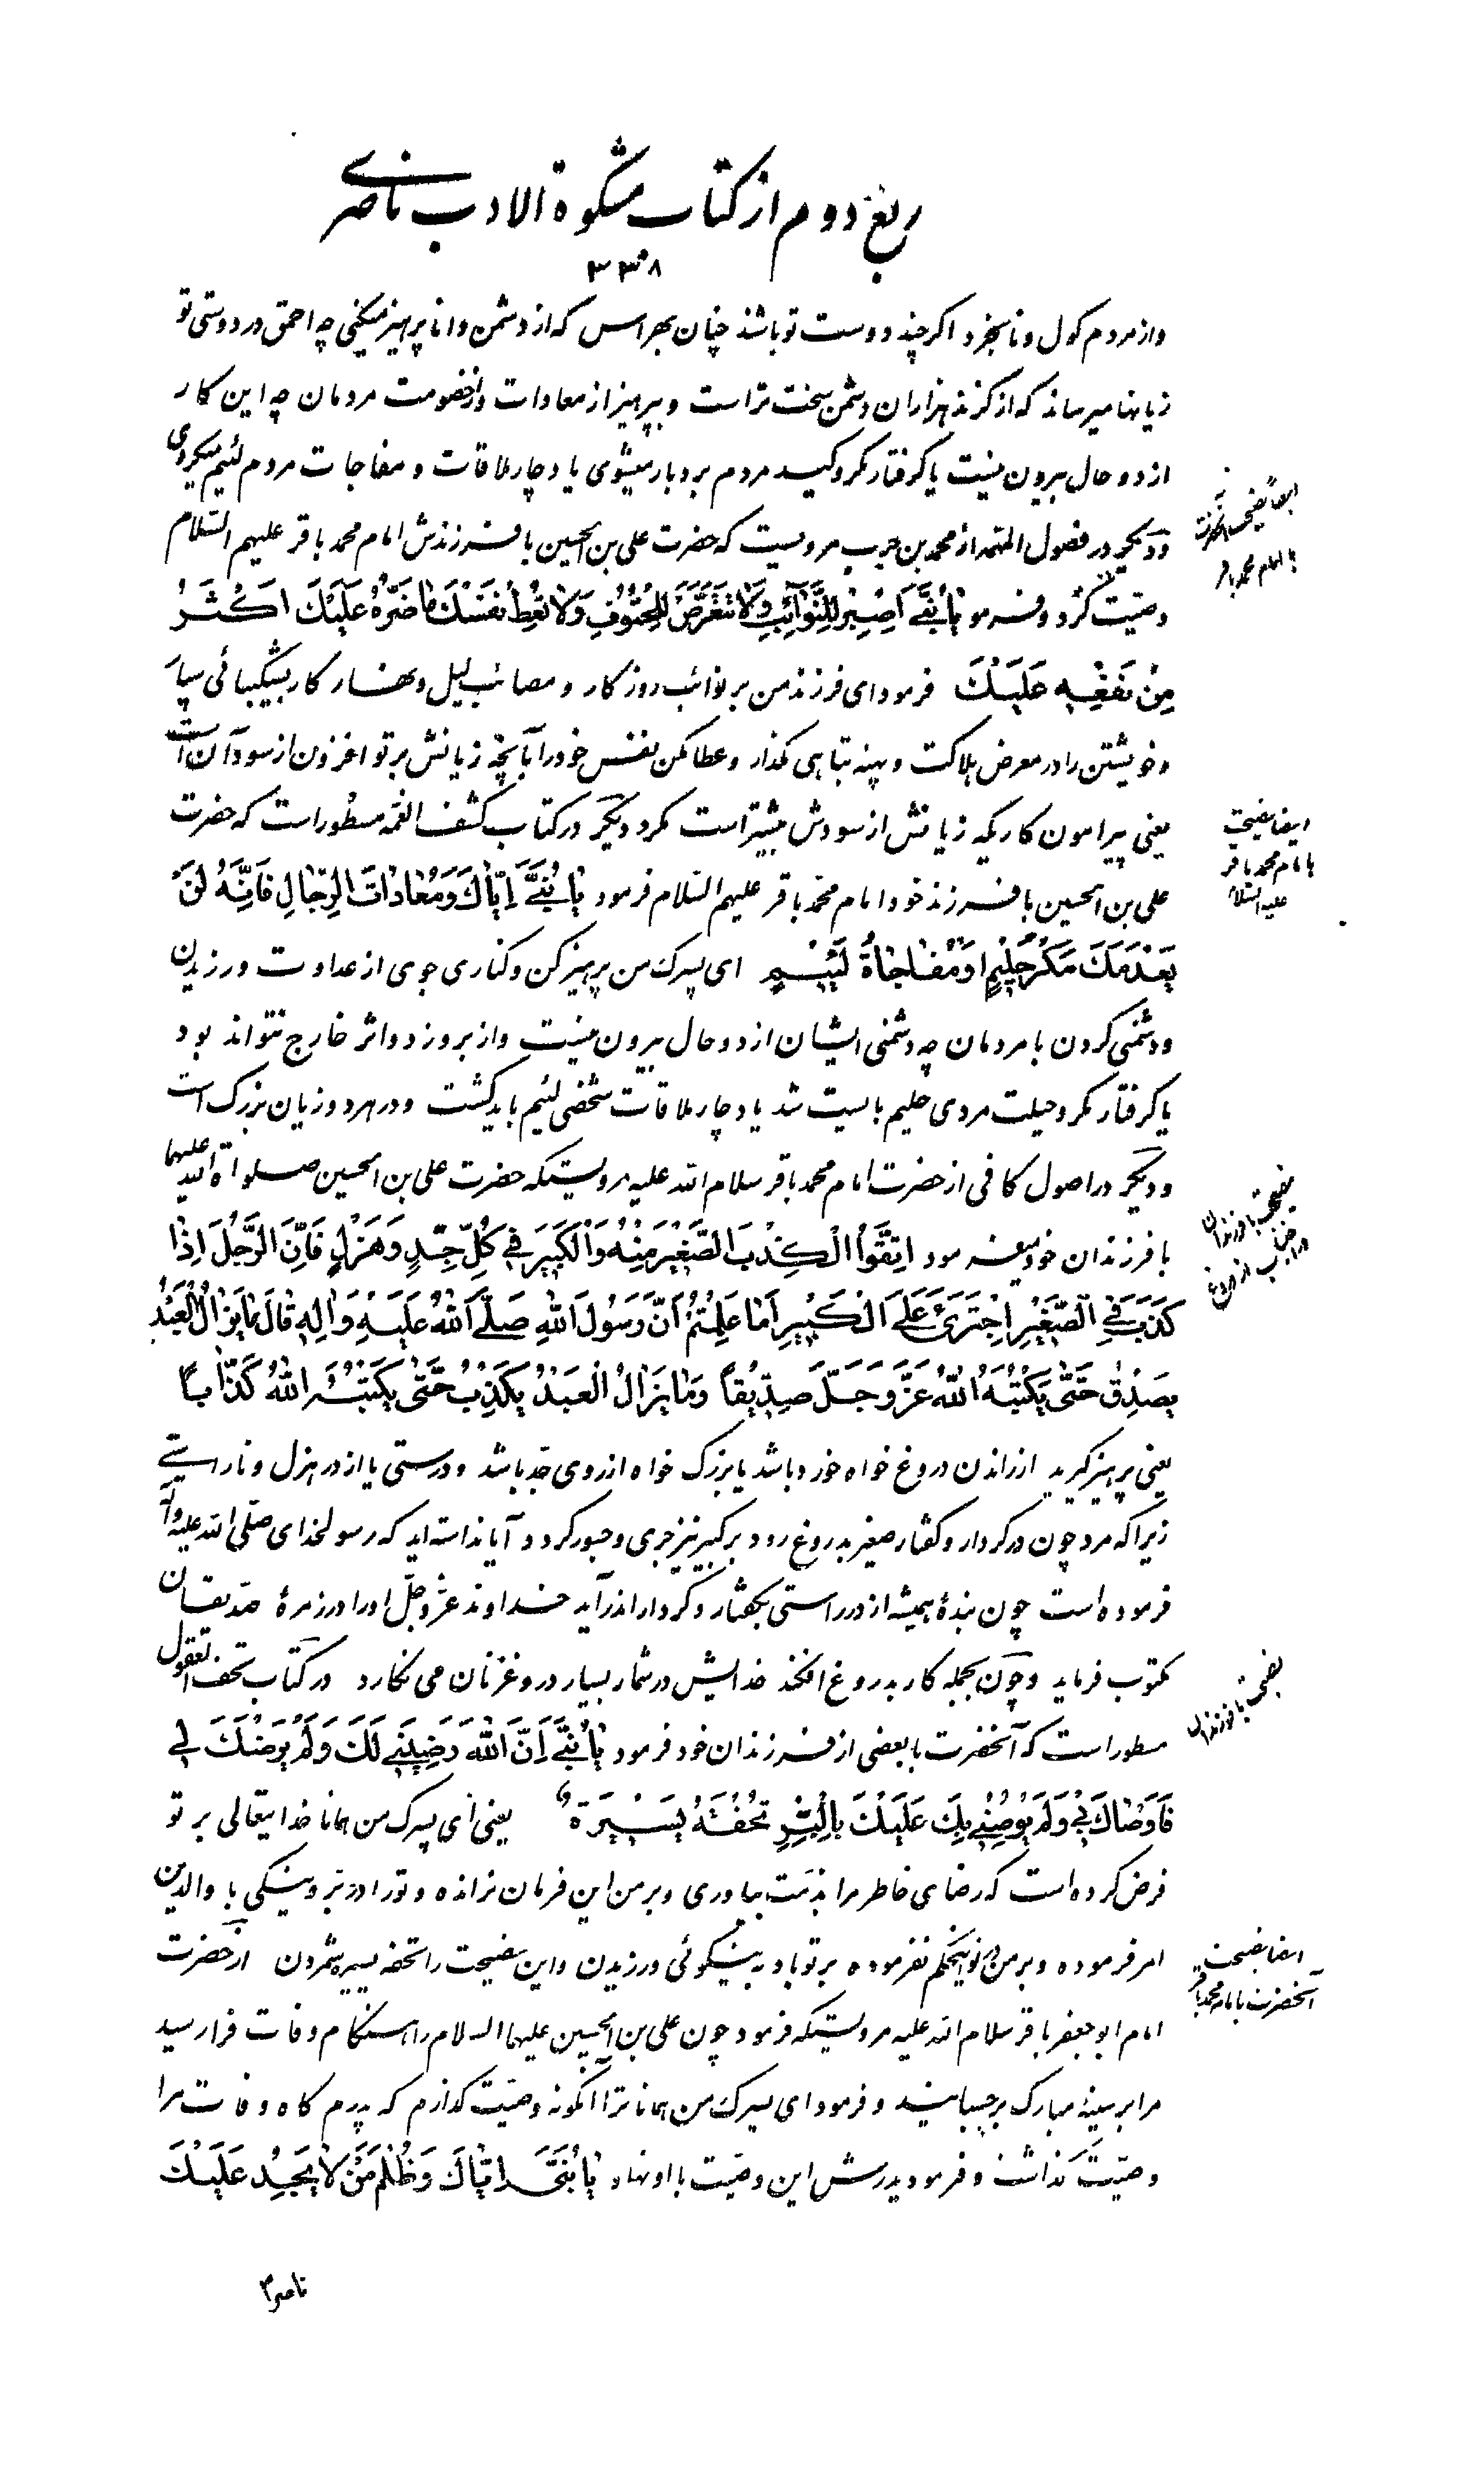 ربع دوم از کتاب مشکوة الادب ناصری
۳۳۸
و از مردم کول و نابخرد اکرچند دوست تو باشد چنان بهراس که از دشمن دانا پرهیز میکنی چه احمق در دوستی تو
زیانها میرساند که از کزند هزاران دشمن سخت تر است و بپرهیز از معادات و از خصومت مردمان چه این کار
از دو حال بیرون نیست یا کرفتار مکر و کید مردم بردبار میشوی یا دچار ملاقات و مفاجات مردم لئیم میکردی
و دیکر در فصول المهمه از محمد بن حرب مرویست که حضرت علی بن الحسین با فرزندش امام محمد باقر علیهم السّلام
وصیّت کرد و فرمود یا بُنَیَّ اَصْبِرْ لِلنَّوآئِبِ وَلا تَتَعَرَّضْ لِلْحُتُوفِ وَلا تُعْطِ نَفْسَكَ ما ضَرُّهُ عَلَیْكَ اَکْثَرُ
مِنْ نَفْعِهِ عَلَیْكَ فرمود ای فرزند من بر نوائب روزکار و مصائب لیل و نهار کار بشکیبائی سپار
و خویشتن را در معرض هلاکت و پهنه تباهی مکذار و عطا مکن نفس خود را آنچه زیانش بر تو افزون از سود آن است
یعنی پیرامون کاریکه زیانش از سودش بیشتر است مکرد و دیکر در کتاب کشف الغمّه مسطور است که حضرت
علی بن الحسین با فرزند خود امام محمّد باقر علیهم السّلام فرمود یا بُنَیَّ اِیّاكَ وَمُعاداتَ الرِّجالِ فَاِنَّهُ لَنْ
یَعْدَمَكَ مَکْرُ حَلیٖمٍ اَوْ مُفاجاةُ لَئیٖمٍ ای پسرک من پرهیز کن و کناری جوی از عداوت ورزیدن
و دشمنی کردن با مردمان چه دشمنی ایشان از دو حال بیرون نیست و از بروز دو اثر خارج نتواند بود
یا کرفتار مکر و حیلت مردی حلیم بایست شد یا دچار ملاقات شخصی لئیم باید کشت و در هر دو زیان بزرک است
و دیکر در اصول کافی از حضرت امام محمد باقر سلام الله علیه مرویستکه حضرت علی بن الحسین صلواة الله علیهما
با فرزندان خود میفرمود اِتَّقُوا الْکِذْبَ الصَّغیٖرَ مِنْهُ وَالْکَبیٖرَ فیٖ کُلِّ جِدٍّ وَهَزْلٍ فَاِنَّ الرَّجُلَ اِذا
کَذَبَ فِی الصَّغیٖرِ اِجْتَرَئَ عَلَی الْکَبیٖرِ اَما عَلِمْتُمْ اَنَّ رَسُولَ اللهِ صَلَّی اللهُ عَلَیْهِ وَ الِهِ قالَ ما یَزالُ الْعَبْدُ
یَصْدِقُ حَتّی یَکْتُبَهُ اللهُ عَزَّ وَ جَلَّ صِدّیٖقاً وَما یَزالُ الْعَبْدُ یَکْذِبُ حَتّی یَکْتُبَهُ اللهُ کَذّاباً
یعنی پرهیز کیرید از راندن دروغ خواه خورد باشد یا بزرک خواه از روی جدّ باشد و درستی یا از در هزل و ناراستی
زیرا که مرد چون در کردار و کفتار صغیر بدروغ رود بر کبیر نیز جری و جسور کردد آیا ندانسته اید که رسولخدای صلّی الله علیه و آله
فرموده است چون بندهٔ همیشه از در راستی بکفتار و کردار اندر آید خداوند عزّ و جلّ او را در زمرهٔ صدّیقان
مکتوب فرماید و چون بجمله کار بدروغ افکند خدایش در شمار بسیار دروغزنان می نکارد در کتاب تحف العقول
مسطور است که آنحضرت با بعضی از فرزندان خود فرمود یا بُنَیَّ اِنَّ اللهَ رَضِیَنیٖ لَكَ وَلَمْ یَرْضَكَ لیٖ
فَاَوْصاكَ بیٖ وَلَمْ یُوصِنیٖ بِكَ عَلَیْكَ بِالْبِرِّ تُحْفَةٌ یَسیٖرَةٌ یعنی ای پسرک من همانا خدایتعالی بر تو
فرض کرده است که رضای خاطر مرا بذمّت بیاوری و بر من این فرمان نرانده و تو را در برّ و نیکی با والدین
امر فرموده و بر من اینحکم نفرموده بر تو باد به نیکوئی ورزیدن و این نصیحت را تحفه یسیره شمردن از حضرت
امام ابو جعفر باقر سلام الله علیه مرویستکه فرمود چون علی بن الحسین علیهما السلام را هنکام وفات فرا رسید
مرا بر سینهٔ مبارک برچسبانید و فرمود ای پسرک من همانا ترا آنکونه وصیّت کذارم که پدرم کاه وفات مرا
وصیّت کذاشت و فرمود پدرش این وصیّت با او نهاد یا بُنَیَّ اِیّاكَ وَظُلْمَ مَنْ لا یَجِدُ عَلَیْكَ
ناصراً
ایضاً نصیحت آنحضرت
با امام محمد باقر
ایضا نصیحت
با امام محمد باقر
علیه السّلام
نصیحت با فرزندان
در اجتناب از دروغ
نصیحت با فرزندان
ایضا نصیحت
آنحضرت با امام محمد باقر